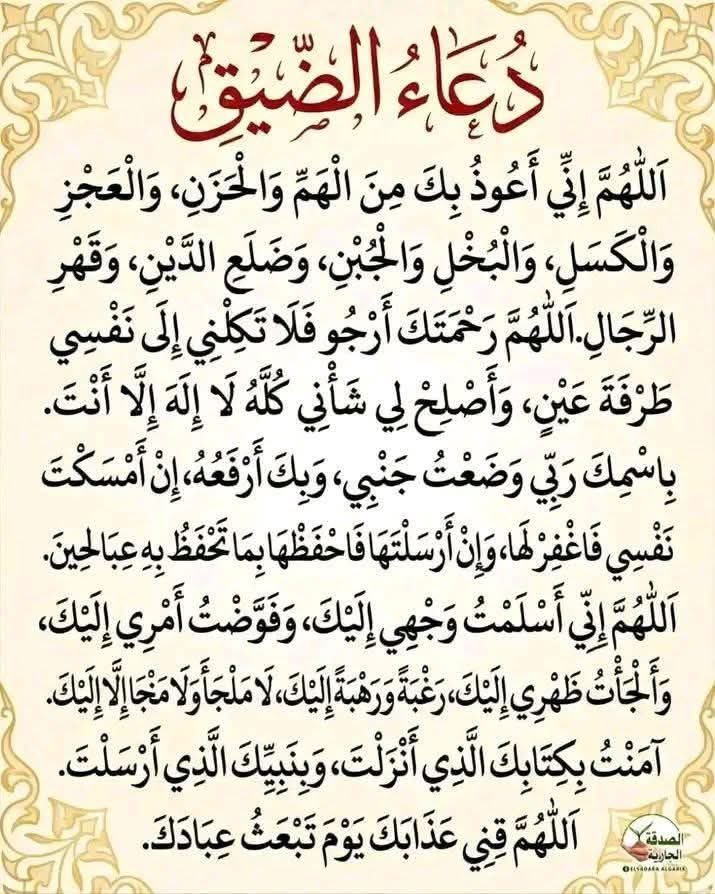 دُعَاءُ الضِّيْقِ
اَللّٰهُمَّ إِنِّي أَعُوذُ بِكَ مِنَ الْهَمِّ وَالْحَزَنِ، وَالْعَجْزِ
وَالْكَسَلِ، وَالْبُخْلِ وَالْجُبْنِ، وَضَلَعِ الدَّيْنِ، وَقَهْرِ
الرِّجَالِ.اَللّٰهُمَّ رَحْمَتَكَ أَرْجُو فَلَا تَكِلْنِي إِلَى نَفْسِي
طَرْفَةَ عَيْنٍ، وَأَصْلِحْ لِي شَأْنِي كُلَّهُ لَا إِلَهَ إِلَّا أَنْتَ.
بِاسْمِكَ رَبِّي وَضَعْتُ جَنْبِي، وَبِكَ أَرْفَعُهُ، إِنْ أَمْسَكْتَ
نَفْسِي فَاغْفِرْ لَهَا، وَإِنْ أَرْسَلْتَهَا فَاحْفَظْهَا بِمَا تَحْفَظُ بِهِ عِبَالحِينَ.
اَللّٰهُمَّ إِنِّي أَسْلَمْتُ وَجْهِي إِلَيْكَ، وَفَوَّضْتُ أَمْرِي إِلَيْكَ،
وَأَلْجَأْتُ ظَهْرِي إِلَيْكَ، رَغْبَةً وَرَهْبَةً إِلَيْكَ، لَا مَلْجَأَ وَلَا مَنْجَا إِلَّا إِلَيْكَ.
آمَنْتُ بِكِتَابِكَ الَّذِي أَنْزَلْتَ، وَبِنَبِيِّكَ الَّذِي أَرْسَلْتَ.
اَللّٰهُمَّ قِنِي عَذَابَكَ يَوْمَ تَبْعَثُ عِبَادَكَ.
الصدقة
الجارية
ELSADAKA ALGARIA